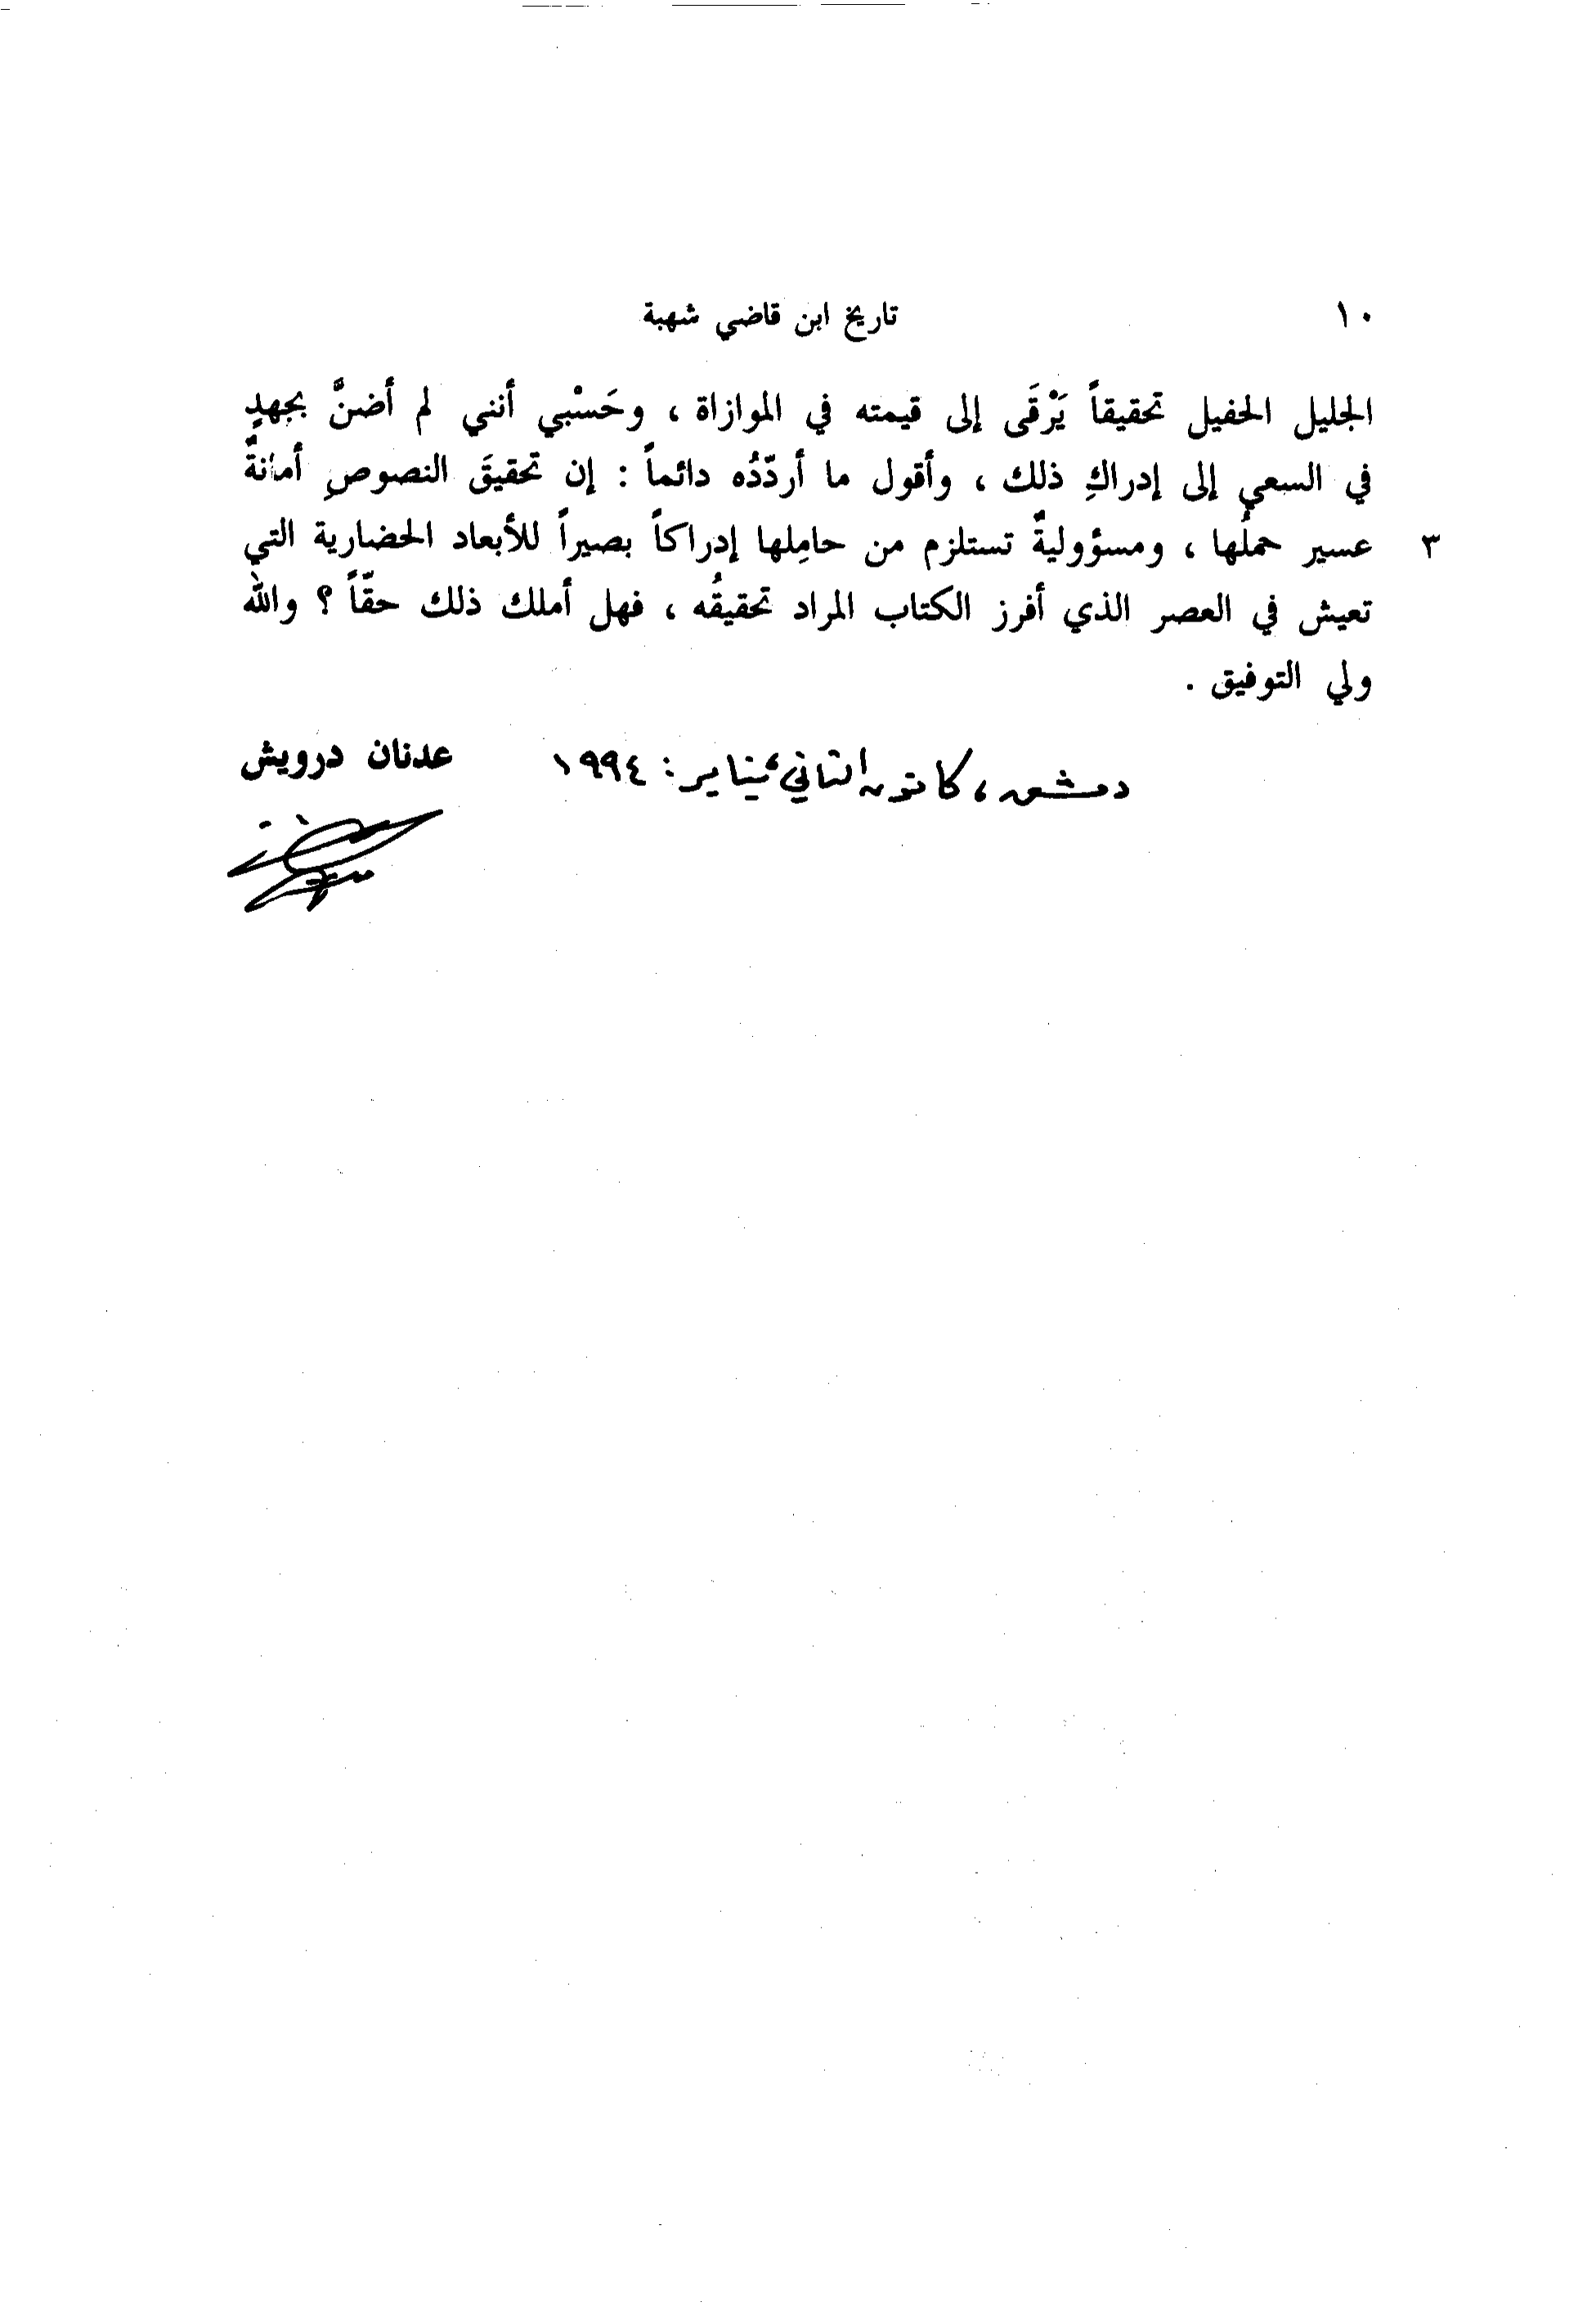 ١٠ تاريخ ابن قاضي شهبة
الجليل الحفيل تحقيقاً يَرْقَى إلى قيمته في الموازاة ، وحَسْبي أنني لم أضنَّ بجهدٍ
في السعي إلى إدراكِ ذلك ، وأقول ما أردّدُه دائماً : إن تحقيقَ النصوصِ أمانةٌ
٣ عسير حملُها ، ومسؤوليةٌ تستلزم من حامِلها إدراكاً بصيراً للأبعاد الحضارية التي
تعيش في العصر الذي أفرز الكتاب المراد تحقيقُه ، فهل أملك ذلك حقّاً ؟ والله
ولي التوفيق .
دمشق ، كانون الثاني ، يناير : ١٩٩٤ عدنان درويش